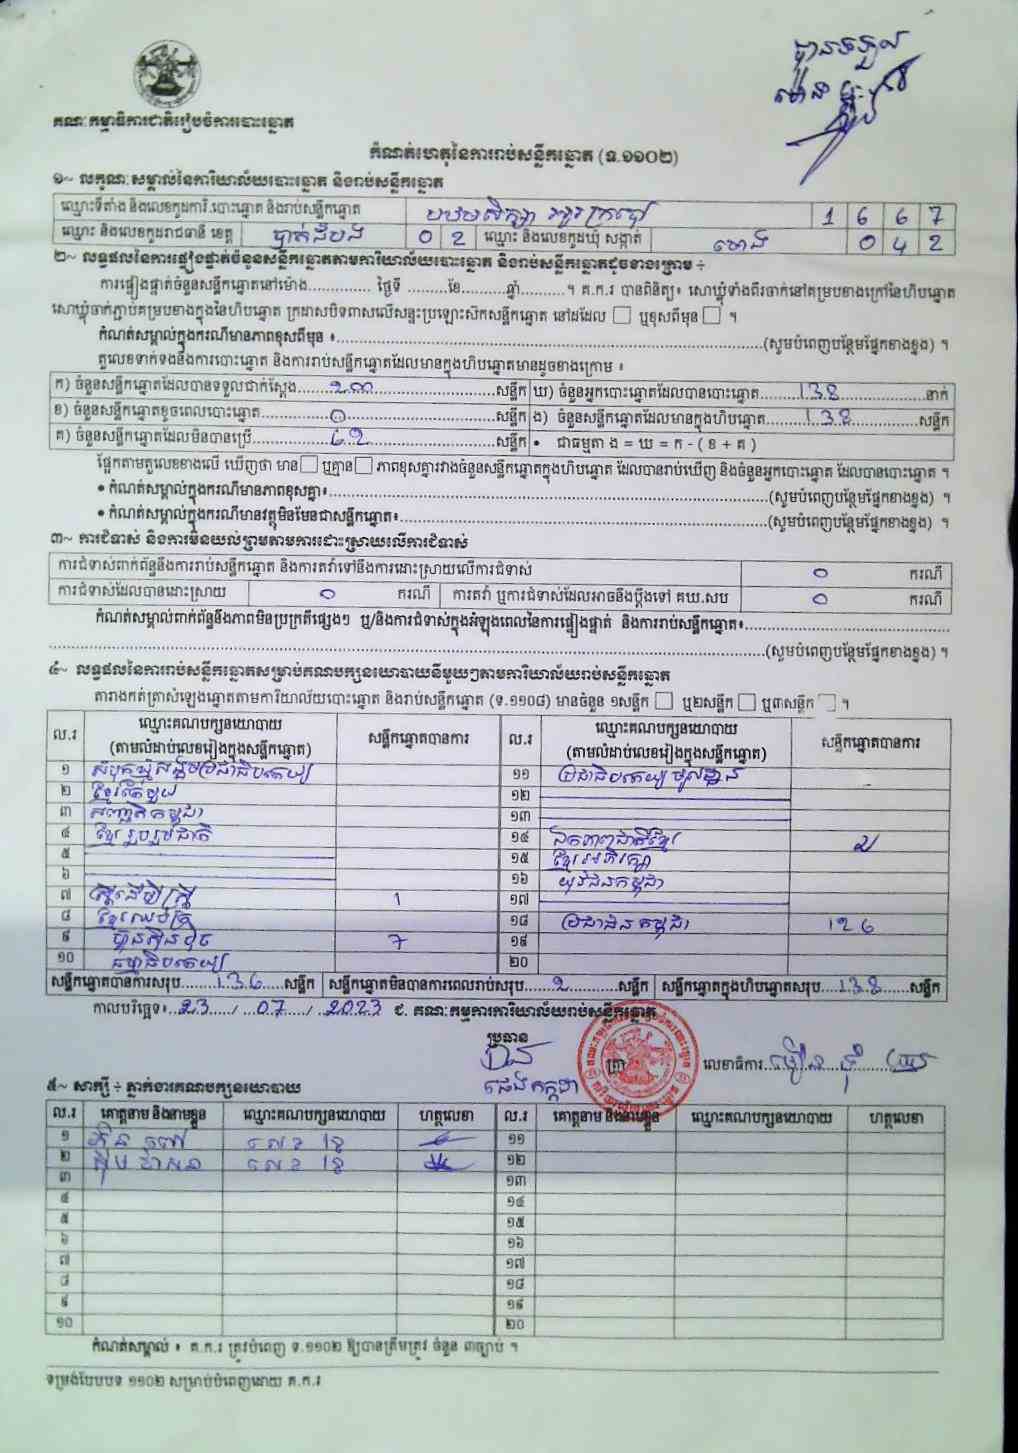 គណៈកម្មាធិការជាតិរៀបចំការបោះឆ្នោត
កំណត់ហេតុនៃការរាប់សន្លឹកឆ្នោត (ទ.១១០២)
១~ លក្ខណៈសម្គាល់នៃការិយាល័យបោះឆ្នោត និងរាប់សន្លឹកឆ្នោត
ឈ្មោះទីតាំង និងលេខកូដការិ.បោះឆ្នោត និងរាប់សន្លឹកឆ្នោត 1 6 6 7
ឈ្មោះ និងលេខកូដរាជធានី ខេត្ត បាត់ដំបង 0 2 ឈ្មោះ និងលេខកូដឃុំ សង្កាត់ 0 4 2
២~ លទ្ធផលនៃការផ្ទៀងផ្ទាត់ចំនួនសន្លឹកឆ្នោតតាមការិយាល័យបោះឆ្នោត និងរាប់សន្លឹកឆ្នោតដូចខាងក្រោម ÷
ការផ្ទៀងផ្ទាត់ចំនួនសន្លឹកឆ្នោតនៅម៉ោង.............. ថ្ងៃទី .........ខែ..........ឆ្នាំ..........។ គ.ក.រ បានពិនិត្យ៖ សោឃ្លុំទាំងពីរចាក់នៅគម្របខាងក្រៅនៃហិបឆ្នោត
សោឃ្លុំចាក់ភ្ជាប់គម្របខាងក្នុងនៃហិបឆ្នោត ក្រដាសបិទពាសលើសន្ទះប្រឡោះស៊កសន្លឹកឆ្នោត នៅដដែល □ ឬខុសពីមុន □ ។
កំណត់សម្គាល់ក្នុងករណីមានភាពខុសពីមុន ៖..............................(សូមបំពេញបន្ថែមផ្នែកខាងខ្នង) ។
តួលេខទាក់ទងនឹងការបោះឆ្នោត និងការរាប់សន្លឹកឆ្នោតដែលមានក្នុងហិបឆ្នោតមានដូចខាងក្រោម ៖
ក) ចំនួនសន្លឹកឆ្នោតដែលបានទទួលជាក់ស្តែង..............................សន្លឹក ឃ) ចំនួនអ្នកបោះឆ្នោតដែលបានបោះឆ្នោត........138..............នាក់
ខ) ចំនួនសន្លឹកឆ្នោតខូចពេលបោះឆ្នោត............0..................សន្លឹក ង) ចំនួនសន្លឹកឆ្នោតដែលមានក្នុងហិបឆ្នោត.........138............សន្លឹក
គ) ចំនួនសន្លឹកឆ្នោតដែលមិនបានប្រើ............62..................សន្លឹក • ជាធម្មតា ង = ឃ = ក - ( ខ + គ )
ផ្អែកតាមតួលេខខាងលើ ឃើញថា មាន □ ឬគ្មាន □ ភាពខុសគ្នារវាងចំនួនសន្លឹកឆ្នោតក្នុងហិបឆ្នោត ដែលបានរាប់ឃើញ និងចំនួនអ្នកបោះឆ្នោត ដែលបានបោះឆ្នោត ។
• កំណត់សម្គាល់ក្នុងករណីមានភាពខុសគ្នា៖..............................(សូមបំពេញបន្ថែមផ្នែកខាងខ្នង) ។
• កំណត់សម្គាល់ក្នុងករណីមានវត្ថុមិនមែនជាសន្លឹកឆ្នោត៖..............................(សូមបំពេញបន្ថែមផ្នែកខាងខ្នង) ។
៣~ ការជំទាស់ និងការមិនយល់ព្រមតាមការដោះស្រាយលើការជំទាស់
ការជំទាស់ពាក់ព័ន្ធនឹងការរាប់សន្លឹកឆ្នោត និងការតវ៉ាទៅនឹងការដោះស្រាយលើការជំទាស់ 0 ករណី
ការជំទាស់ដែលបានដោះស្រាយ 0 ករណី ការតវ៉ា ឬការជំទាស់ដែលអាចនឹងប្តឹងទៅ គឃ.សប 0 ករណី
កំណត់សម្គាល់ពាក់ព័ន្ធនឹងភាពមិនប្រក្រតីផ្សេងៗ ឬ/និងការជំទាស់ក្នុងអំឡុងពេលនៃការផ្ទៀងផ្ទាត់ និងការរាប់សន្លឹកឆ្នោត៖..............................
..............................(សូមបំពេញបន្ថែមផ្នែកខាងខ្នង) ។
៤~ លទ្ធផលនៃការរាប់សន្លឹកឆ្នោតសម្រាប់គណបក្សនយោបាយនីមួយៗតាមការិយាល័យរាប់សន្លឹកឆ្នោត
តារាងកត់ត្រាសំឡេងឆ្នោតតាមការិយាល័យបោះឆ្នោត និងរាប់សន្លឹកឆ្នោត (ទ.១១០៨) មានចំនួន ១សន្លឹក □ ឬ២សន្លឹក □ ឬ៣សន្លឹក □ ។
ល.រ ឈ្មោះគណបក្សនយោបាយ (តាមលំដាប់លេខរៀងក្នុងសន្លឹកឆ្នោត) សន្លឹកឆ្នោតបានការ ល.រ ឈ្មោះគណបក្សនយោបាយ (តាមលំដាប់លេខរៀងក្នុងសន្លឹកឆ្នោត) សន្លឹកឆ្នោតបានការ
១ សំបុកឃ្មុំសង្គមប្រជាធិបតេយ្យ ១១ ប្រជាធិបតេយ្យមូលដ្ឋាន
២ ខ្មែរតែមួយ ១២
៣ សញ្ជាតិកម្ពុជា ១៣
៤ ខ្មែររួបរួមជាតិ ១៤ ឯកភាពជាតិខ្មែរ
៥ ១៥ ខ្មែរអភិរក្ស
៦ ១៦ យុវជនកម្ពុជា
៧ ស្ត្រីដើម្បីស្ត្រី 1 ១៧
៨ ១៨ ប្រជាជនកម្ពុជា 126
៩ ហ៊្វុនស៊ិនប៉ិច 7 ១៩
១០ ធម្មាធិបតេយ្យ ២០
សន្លឹកឆ្នោតបានការសរុប........136......សន្លឹក សន្លឹកឆ្នោតមិនបានការពេលរាប់សរុប......2..........សន្លឹក សន្លឹកឆ្នោតក្នុងហិបឆ្នោតសរុប....138........សន្លឹក
កាលបរិច្ឆេទ៖..23..../...07..../..2023 ជ. គណៈកម្មការការិយាល័យរាប់សន្លឹកឆ្នោត
ប្រធាន
ត្រា លេខាធិការ
៥~ សាក្សី ÷ ភ្នាក់ងារគណបក្សនយោបាយ
ល.រ គោត្តនាម និងនាមខ្លួន ឈ្មោះគណបក្សនយោបាយ ហត្ថលេខា ល.រ គោត្តនាម និងនាមខ្លួន ឈ្មោះគណបក្សនយោបាយ ហត្ថលេខា
១ ១១
២ ១២
៣ ១៣
៤ ១៤
៥ ១៥
៦ ១៦
៧ ១៧
៨ ១៨
៩ ១៩
១០ ២០
កំណត់សម្គាល់ ៖ គ.ក.រ ត្រូវបំពេញ ទ.១១០២ ឱ្យបានត្រឹមត្រូវ ចំនួន ៣ច្បាប់ ។
ទម្រង់បែបបទ ១១០២ សម្រាប់បំពេញដោយ គ.ក.រ